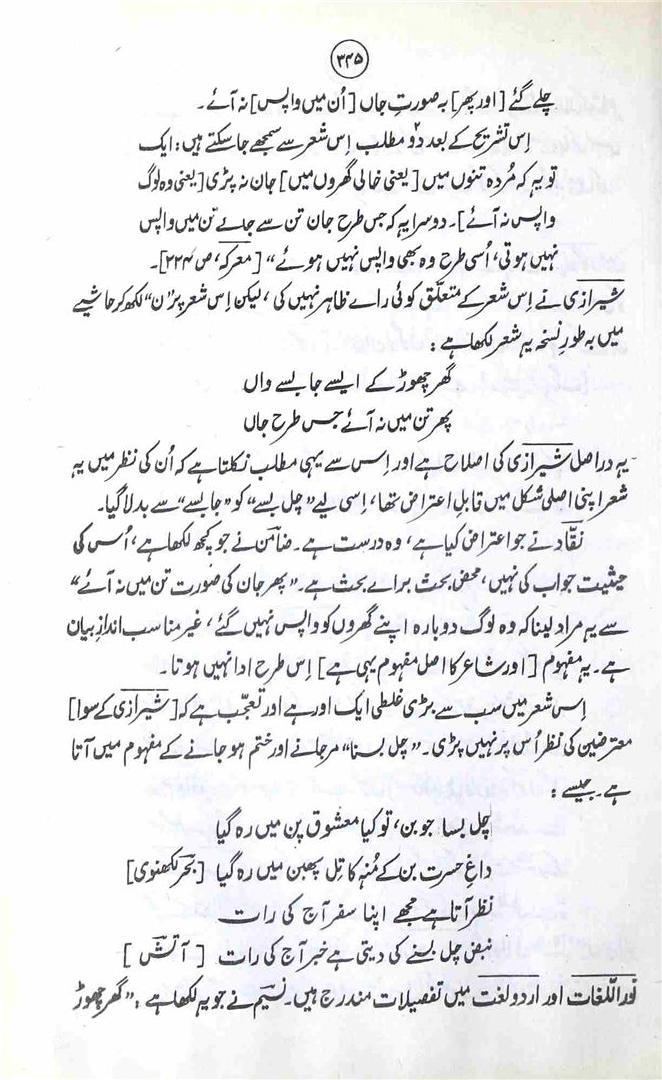 ۳۴۵
چلے گئے [اور پھر] بہ صورتِ جاں [اُن میں واپس] نہ آئے۔
اِس تشریح کے بعد دوٗ مطلب اِس شعر سے سمجھے جا سکتے ہیں: ایک
تو یہ کہ مُردہ تنوں میں [یعنی خالی گھروں میں] جان نہ پڑی [یعنی وہ لوگ
واپس نہ آئے]۔ دوسرا یہ کہ جس طرح جان تن سے جا کے تن میں واپس
نہیں ہوتی، اُسی طرح وہ بھی واپس نہیں ہوئے“ [معرکہ، ص ۲۲۴]۔
شیرازی نے اِس شعر کے متعلّق کوئی راے ظاہر نہیں کی، لیکن اِس شعر پر ”ن“ لکھ کر حاشیے
میں بہ طورِ نسخہ یہ شعر لکھا ہے:
گھر چھوڑ کے ایسے جا بسے واں
پھر تن میں نہ آئے جس طرح جاں
یہ در اصل شیرازی کی اصلاح ہے اور اِس سے یہی مطلب نکلتا ہے کہ اُن کی نظر میں یہ
شعر اپنی اصلی شکل میں قابلِ اعتراض تھا، اِسی لیے ”چل بسے“ کو ”جا بسے“ سے بدلا گیا۔
نقّاد نے جو اعتراض کیا ہے، وہ درست ہے۔ ضامن نے جو کچھ لکھا ہے، اُس کی
حیثیت جواب کی نہیں، محض بحث براے بحث ہے۔ ”پھر جان کی صورت تن میں نہ آئے“
سے یہ مراد لینا کہ وہ لوگ دوبارہ اپنے گھروں کو واپس نہیں گئے، غیر مناسب اندازِ بیان
ہے۔ یہ مفہوم [اور شاعر کا اصل مفہوم یہی ہے] اِس طرح ادا نہیں ہوتا۔
اِس شعر میں سب سے بڑی غلطی ایک اور ہے اور تعجّب ہے کہ [شیرازی کے سوا]
معترضین کی نظر اُس پر نہیں پڑی۔ ”چل بسنا“ مر جانے اور ختم ہو جانے کے مفہوم میں آتا
ہے۔ جیسے:
چل بسا جوبن، تو کیا معشوق پن میں رہ گیا
داغِ حسرت بن کے مُنہ کا تِل پھبن میں رہ گیا [بحر لکھنوی]
نظر آتا ہے مجھے اپنا سفر آج کی رات
نبض چل بسنے کی دیتی ہے خبر آج کی رات [آتش]
نور اللّغات اور اردو لغت میں تفصیلات مندرج ہیں۔ نسیم نے جو یہ لکھا ہے: ”گھر چھوڑ